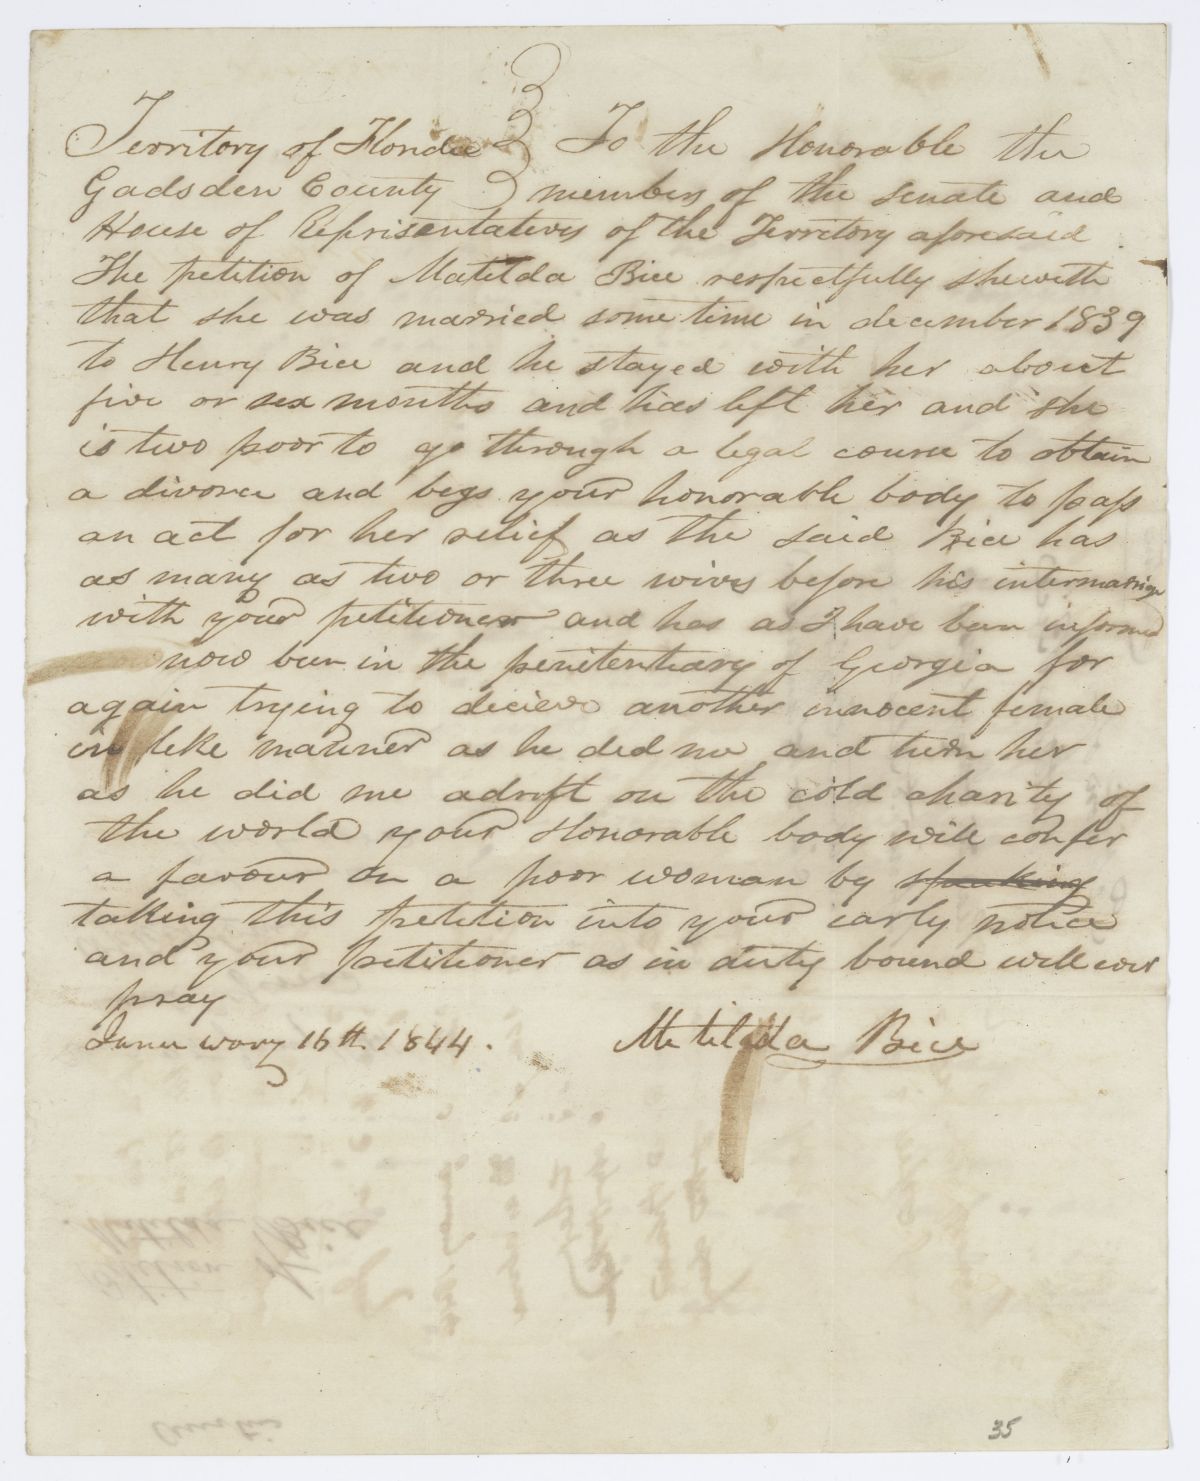 Territory of Florida } To the Honorable the
Gadsden County } members of the senate and
House of Reprisentatives of the Territory aforesaid
The petition of Matilda Bice respectfully sheweth
that she was married some time in december 1839
to Henry Bice and he stayed with her about
five or sex months and has left her and she
is two poor to go through a legal course to obtain
a divorce and begs your honorable body to pass
an act for her relief as the said Bice has
as many as two or three wives before his intermarrige
with your petitioner and has as I have been informed
now been in the penitentiary of Georgia for
again trying to decieve another innocent female
in like manner as he did me and turn her
as he did me adrift on the cold charity of
the world your Honorable body will confer
a favour on a poor woman by speaking
taking this petition into your early notice
and your petitioner as in duty bound will ever
pray
January 16th 1844. Matilda Bice
35